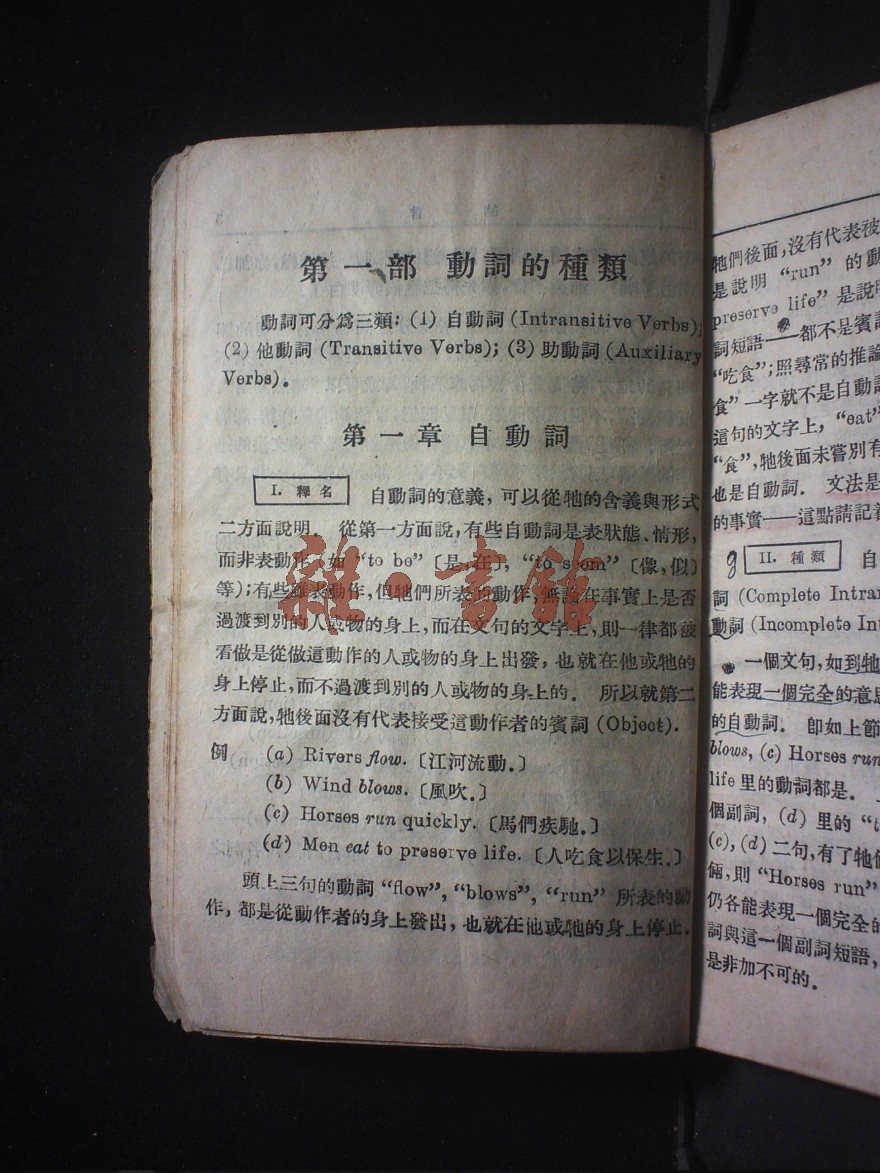 第一部 動詞的種類
動詞可分爲三類: (1) 自動詞 (Intransitive Verbs);
(2) 他動詞 (Transitive Verbs); (3) 助動詞 (Auxiliary
Verbs).
第一章 自動詞
I. 釋名 自動詞的意義, 可以從牠的含義與形式
二方面說明. 從第一方面說, 有些自動詞是表狀態、情形,
而非表動作, 如 “to be” 〔是, 在〕, “to seem” 〔像, 似〕
等); 有些雖表動作, 但牠們所表的動作, 無論在事實上是否
過渡到別的人或物的身上, 而在文句的文字上, 則一律都被
看做是從做這動作的人或物的身上出發, 也就在他或牠的
身上停止, 而不過渡到別的人或物的身上的. 所以就第二
方面說, 牠後面沒有代表接受這動作者的賓詞 (Object).
例 (a) Rivers flow. 〔江河流動.〕
(b) Wind blows. 〔風吹.〕
(c) Horses run quickly. 〔馬們疾馳.〕
(d) Men eat to preserve life. 〔人吃食以保生.〕
頭上三句的動詞 “flow”, “blows”, “run” 所表的動
作, 都是從動作者的身上發出, 也就在他或牠的身上停止.
牠們後面, 沒有代表被
是說明 “run” 的動
preserve life” 是說明
詞短語——都不是賓詞
“吃食”; 照尋常的推論
食” 一字就不是自動詞
這句的文字上, “eat”
“食”, 牠後面未嘗別有
也是自動詞. 文法是
的事實——這點請記着
II. 種類 自
詞 (Complete Intran
動詞 (Incomplete Int
一個文句, 如到牠
能表現一個完全的意思
的自動詞. 卽如上節
blows, (c) Horses run
life 里的動詞都是.
個副詞, (d) 里的 “t
(c), (d) 二句, 有了牠們
倆, 則 “Horses run”
仍各能表現一個完全的
詞與這一個副詞短語,
是非加不可的.
雜·書館